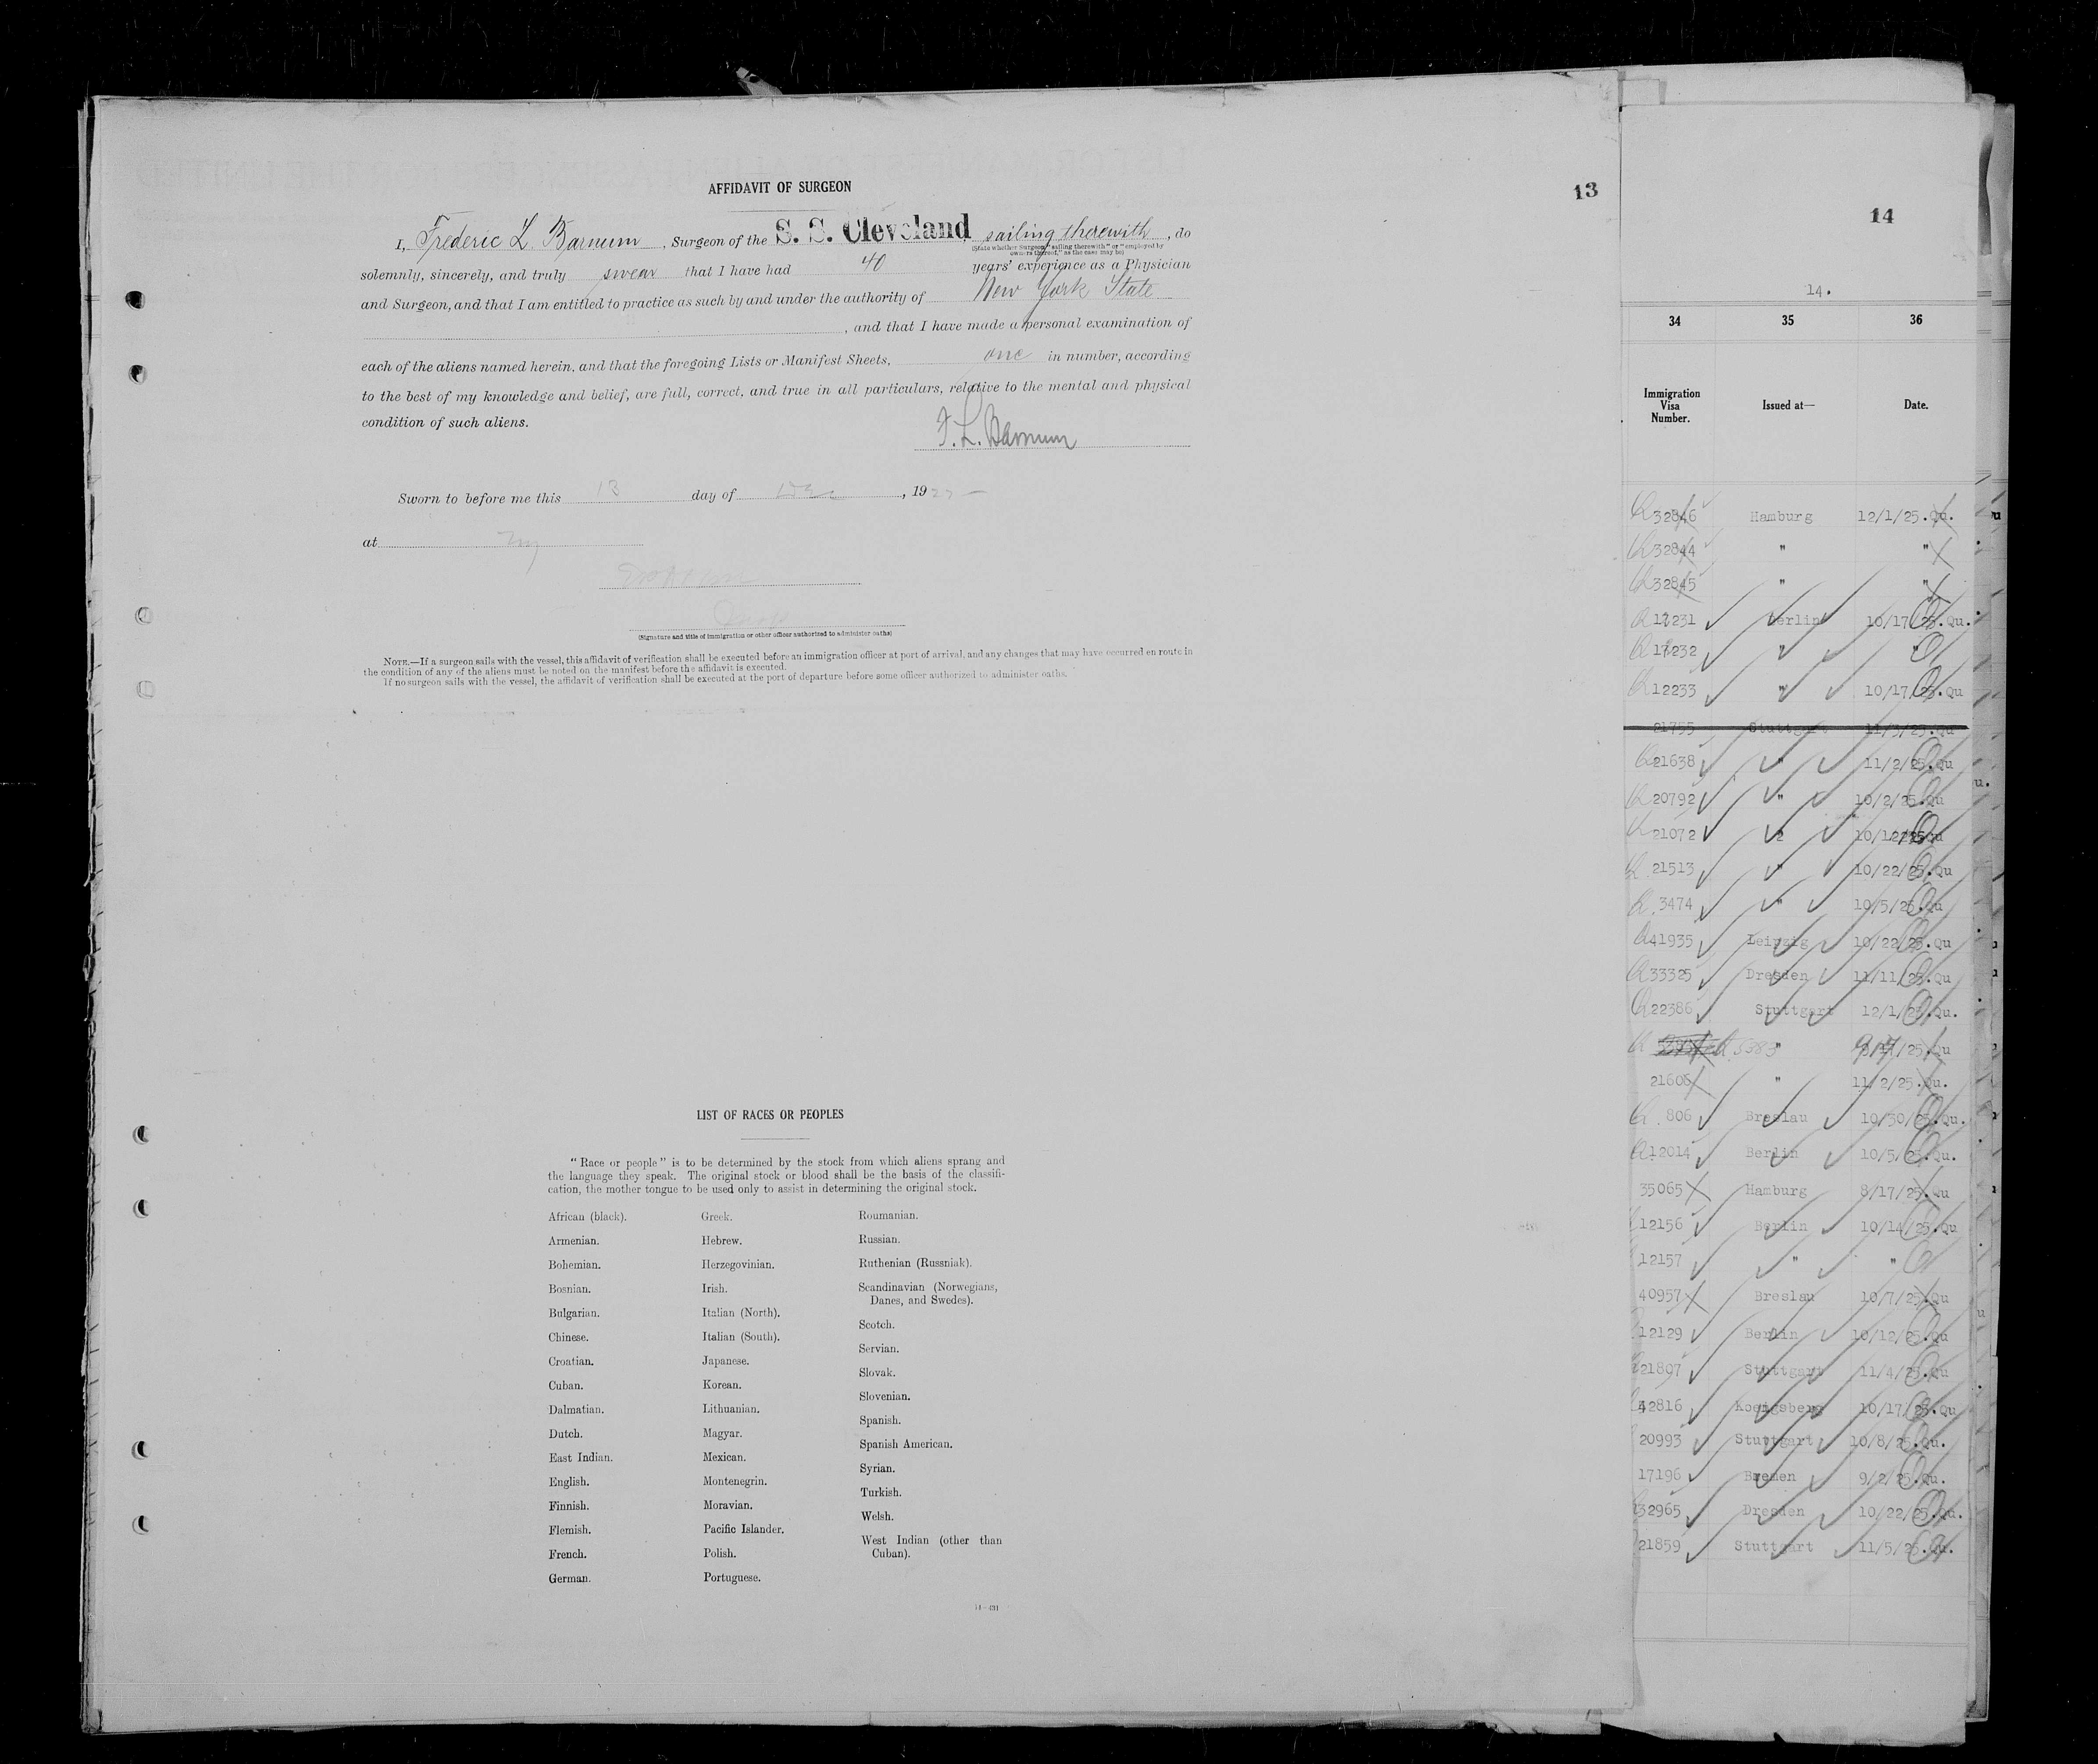 AFFIDAVIT OF SURGEON
13
I, Frederic L. Barnum, Surgeon of the S. S. Cleveland, sailing therewith, do
(State whether Surgeon "sailing therewith" or "employed by
owners thereof," as the case may be)
solemnly, sincerely, and truly swear that I have had 40 years' experience as a Physician
and Surgeon, and that I am entitled to practice as such by and under the authority of New York State
, and that I have made a personal examination of
each of the aliens named herein, and that the foregoing Lists or Manifest Sheets, one in number, according
to the best of my knowledge and belief, are full, correct, and true in all particulars, relative to the mental and physical
condition of such aliens.
F. L. Barnum
Sworn to before me this 13 day of Dec, 19
at NY
(Signature and title of immigration or other officer authorized to administer oaths)
NOTE.—If a surgeon sails with the vessel, this affidavit of verification shall be executed before an immigration officer at port of arrival, and any changes that may have occurred en route in
the condition of any of the aliens must be noted on the manifest before the affidavit is executed.
If no surgeon sails with the vessel, the affidavit of verification shall be executed at the port of departure before some officer authorized to administer oaths.
LIST OF RACES OR PEOPLES
"Race or people" is to be determined by the stock from which aliens sprang and
the language they speak. The original stock or blood shall be the basis of the classifi-
cation, the mother tongue to be used only to assist in determining the original stock.
African (black).
Armenian.
Bohemian.
Bosnian.
Bulgarian.
Chinese.
Croatian.
Cuban.
Dalmatian.
Dutch.
East Indian.
English.
Finnish.
Flemish.
French.
German.
Greek.
Hebrew.
Herzegovinian.
Irish.
Italian (North).
Italian (South).
Japanese.
Korean.
Lithuanian.
Magyar.
Mexican.
Montenegrin.
Moravian.
Pacific Islander.
Polish.
Portuguese.
Roumanian.
Russian.
Ruthenian (Russniak).
Scandinavian (Norwegians,
Danes, and Swedes).
Scotch.
Servian.
Slovak.
Slovenian.
Spanish.
Spanish American.
Syrian.
Turkish.
Welsh.
West Indian (other than
Cuban).
14
14.
34 35 36
Immigration
Visa
Number.
Issued at—
Date.
32846 Hamburg 12/1/25.Qu.
32844 " "
32845 " "
12231 Berlin 10/17/25.Qu.
12232 "
12233 " 10/17/25.Qu
21755 Stuttgart 11/3/25.Qu
21638 " 11/2/25.Qu
20792 " 10/2/25.Qu
21072 10/12/25.Qu
21513 " 10/22/25.Qu
3474 " 10/5/25.Qu
41935 Leipzig 10/22/25.Qu
33325 Dresden 11/11/25.Qu
22386 Stuttgart 12/1/25.Qu.
5383 " /25.Qu
21606 " 11/2/25.Qu.
806 Breslau 10/30/25.Qu.
12014 Berlin 10/5/25.Qu.
35065 Hamburg 8/17/25.Qu
12156 Berlin 10/14/25.Qu
12157 " "
40957 Breslau 10/7/25.Qu
12129 Berlin 10/12/25.Qu
21807 Stuttgart 11/4/25.Qu
42816 Koenigsberg 10/17/25.Qu
20993 Stuttgart 10/8/25.Qu.
17196 Bremen 9/2/25.Qu.
32965 Dresden 10/22/25.Qu.
21859 Stuttgart 11/5/25.Qu.